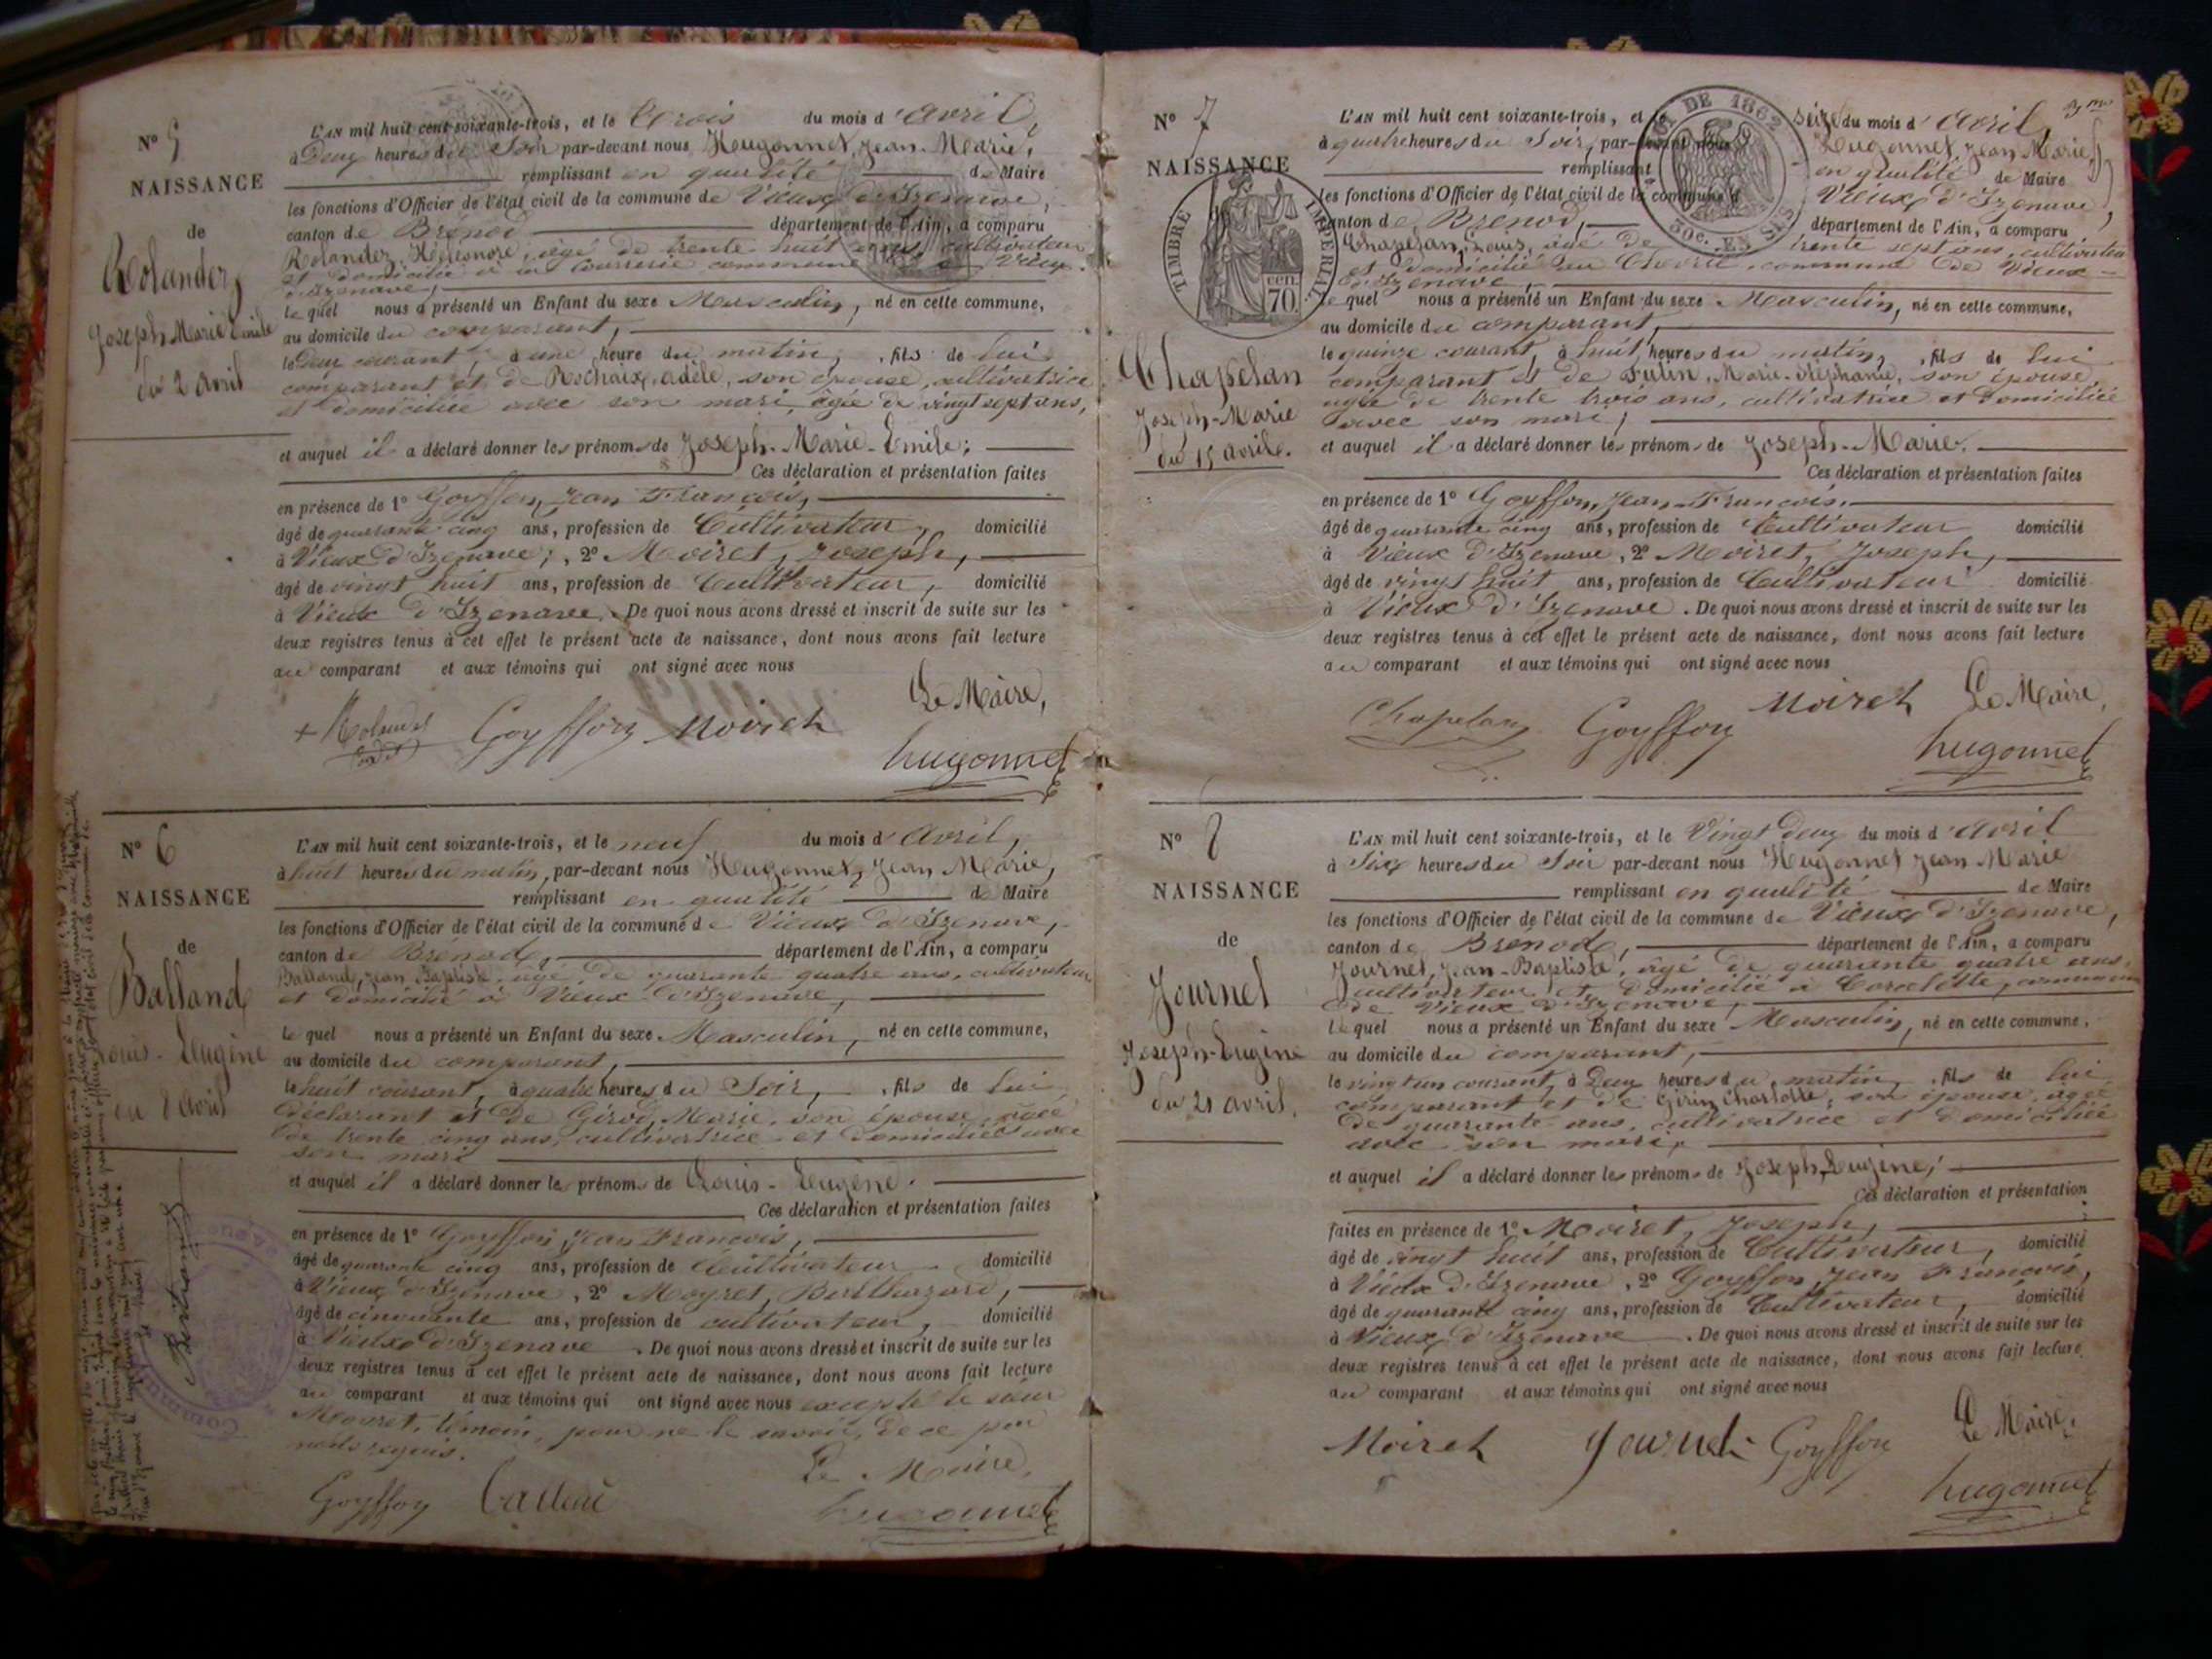 N° 5
NAISSANCE
de
Rolandez
Joseph Marie Emile
du 2 avril
L'AN mil huit cent soixante-trois, et le trois du mois d'avril,
à Deux heures du Soir par-devant nous Hugonnet, Jean-Marie,
remplissant en qualité de Maire
les fonctions d'Officier de l'état civil de la commune de Vieux d'Izenave,
canton de Brénod département de l'Ain, a comparu
Rolandez, âgé de trente huit ans, cultivateur
et domicilié à la commune de Vieux
d'Izenave,
lequel nous a présenté un Enfant du sexe Masculin, né en cette commune,
au domicile du comparant,
le Deux courant, à une heure du matin, fils de lui
comparant et de Rochaix, adèle, son épouse, cultivatrice
et domiciliée avec son mari, âgée de vingt sept ans,
et auquel il a déclaré donner les prénoms de Joseph-Marie-Emile;
Ces déclaration et présentation faites
en présence de 1° Goyffon, Jean François,
âgé de quarante cinq ans, profession de Cultivateur, domicilié
à Vieux d'Izenave; , 2° Moiret, Joseph,
âgé de vingt huit ans, profession de Cultivateur, domicilié
à Vieux d'Izenave. De quoi nous avons dressé et inscrit de suite sur les
deux registres tenus à cet effet le présent acte de naissance, dont nous avons fait lecture
au comparant et aux témoins qui ont signé avec nous
Le Maire,
Goyffon Moiret
hugonnet
N° 6
NAISSANCE
de
Balland
Louis-Eugène
du 8 avril
L'AN mil huit cent soixante-trois, et le neuf du mois d'avril,
à huit heures du matin, par-devant nous Hugonnet, Jean Marie,
remplissant en qualité de Maire
les fonctions d'Officier de l'état civil de la commune de Vieux d'Izenave,
canton de Brénod, département de l'Ain, a comparu
Balland, Jean Baptiste, âgé de quarante quatre ans, cultivateur
et domicilié à Vieux d'Izenave,
lequel nous a présenté un Enfant du sexe Masculin, né en cette commune,
au domicile du comparant,
le huit courant, à quatre heures du Soir, fils de lui
déclarant et de Girod, Marie, son épouse, âgée
de trente cinq ans, cultivatrice et domiciliée avec
son mari
et auquel il a déclaré donner les prénoms de Louis-Eugène.
Ces déclaration et présentation faites
en présence de 1° Goyffon, Jean François,
âgé de quarante cinq ans, profession de Cultivateur domicilié
à Vieux d'Izenave, 2° Moyret, Balthazard,
âgé de cinquante ans, profession de cultivateur, domicilié
à Vieux d'Izenave. De quoi nous avons dressé et inscrit de suite sur les
deux registres tenus à cet effet le présent acte de naissance, dont nous avons fait lecture
au comparant et aux témoins qui ont signé avec nous excepté le sieur
Moyret, témoin, pour ne le savoir, de ce par
nous requis.
Le Maire,
Goyffon
hugonnet
N° 7
NAISSANCE
TIMBRE IMPERIAL
cen.
70.
Chapelan
Joseph-Marie
du 15 avril.
LOI DE 1862
50c. EN SUS
L'AN mil huit cent soixante-trois, et le seize du mois d'avril,
à quatre heures du Soir, par-devant nous Hugonnet, Jean Marie,
remplissant en qualité de Maire
les fonctions d'Officier de l'état civil de la commune d Vieux d'Izenave,
canton de Brenod, département de l'Ain, a comparu
Chapelan, Louis, âgé de trente sept ans, cultivateur
et domicilié au commune de Vieux
d'Izenave,
lequel nous a présenté un Enfant du sexe Masculin, né en cette commune,
au domicile du comparant,
le quinze courant, à huit heures du matin, fils de lui
comparant et de Marie-Stéphanie, son épouse,
agée de trente trois ans, cultivatrice et domiciliée
avec son mari,
et auquel il a déclaré donner les prénoms de Joseph-Marie.
Ces déclaration et présentation faites
en présence de 1° Goyffon, Jean-François,
âgé de quarante cinq ans, profession de Cultivateur domicilié
à Vieux d'Izenave, 2° Moiret, Joseph,
âgé de vingt huit ans, profession de Cultivateur domicilié
à Vieux d'Izenave. De quoi nous avons dressé et inscrit de suite sur les
deux registres tenus à cet effet le présent acte de naissance, dont nous avons fait lecture
au comparant et aux témoins qui ont signé avec nous
Chapelan Goyffon Moiret Le Maire,
hugonnet
N° 8
NAISSANCE
de
Journet
Joseph-Eugène
du 21 avril.
L'AN mil huit cent soixante-trois, et le Vingt Deux du mois d'avril
à Six heures du Soir par-devant nous Hugonnet Jean Marie
remplissant en qualité de Maire
les fonctions d'Officier de l'état civil de la commune de Vieux d'Izenave,
canton de Brenod, département de l'Ain, a comparu
Journet, Jean-Baptiste, âgé de quarante quatre ans,
cultivateur et domicilié à commune
de Vieux d'Izenave,
lequel nous a présenté un Enfant du sexe Masculin, né en cette commune,
au domicile du comparant,
le vingt un courant, à Deux heures du matin, fils de lui
comparant et de Girin Charlotte, son épouse, agée
de quarante ans, cultivatrice et domiciliée
avec son mari,
et auquel il a déclaré donner les prénoms de Joseph, Eugène;
Ces déclaration et présentation
faites en présence de 1° Moiret, Joseph,
âgé de vingt huit ans, profession de Cultivateur, domicilié
à Vieux d'Izenave, 2° Goyffon, Jean François,
âgé de quarante cinq ans, profession de Cultivateur, domicilié
à Vieux d'Izenave. De quoi nous avons dressé et inscrit de suite sur les
deux registres tenus à cet effet le présent acte de naissance, dont nous avons fait lecture
au comparant et aux témoins qui ont signé avec nous
Le Maire,
Moiret Journet Goyffon
hugonnet